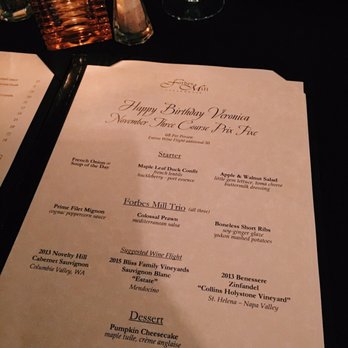 Forbes Mill
Happy Birthday Veronica
November Three Course Prix Fixe
Per Person
Entire Wine Flight additional
Starter
French Onion or
Soup of the Day
Maple Leaf Duck Confit
french lentils
huckleberry - port essence
Apple & Walnut Salad
little gem lettuce, toma cheese
buttermilk dressing
Forbes Mill Trio (all three)
Prime Filet Mignon
cognac peppercorn sauce
Colossal Prawn
mediterranean couscous
Boneless Short Ribs
soy-ginger glaze
yukon mashed potatoes
Suggested Wine Flight
2013 Novelty Hill
Cabernet Sauvignon
Columbia Valley, WA
2015 Bliss Family Vineyards
Sauvignon Blanc
"Estate"
Mendocino
2013 Benessere
Zinfandel
"Collins Holystone Vineyard"
St. Helena - Napa Valley
Dessert
Pumpkin Cheesecake
maple tuile, crème anglaise